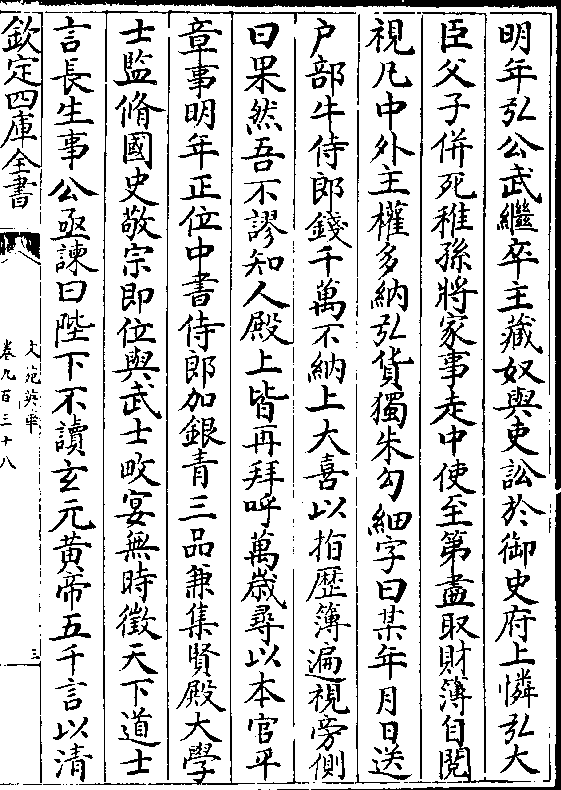 明年弘公武繼卒主藏奴與吏訟於御史府上憐弘大
臣父子併死稚孫將家事走中使至第盡取財簿自閱
視凡中外主權多納弘貨獨朱勾細字曰某年月日送
户部牛侍郎錢千萬不納上大喜以指歴簿遍視旁側
曰果然吾不謬知人殿上皆再拜呼萬嵗尋以本官平
章事明年正位中書侍郎加銀青三品兼集賢殿大學
士監脩國史敬宗即位與武士畋宴無時徵天下道士
言長生事公亟諫曰陛下不讀玄元黄帝五千言以清
欽定四庫全書
文苑英華
卷九百三十八
三